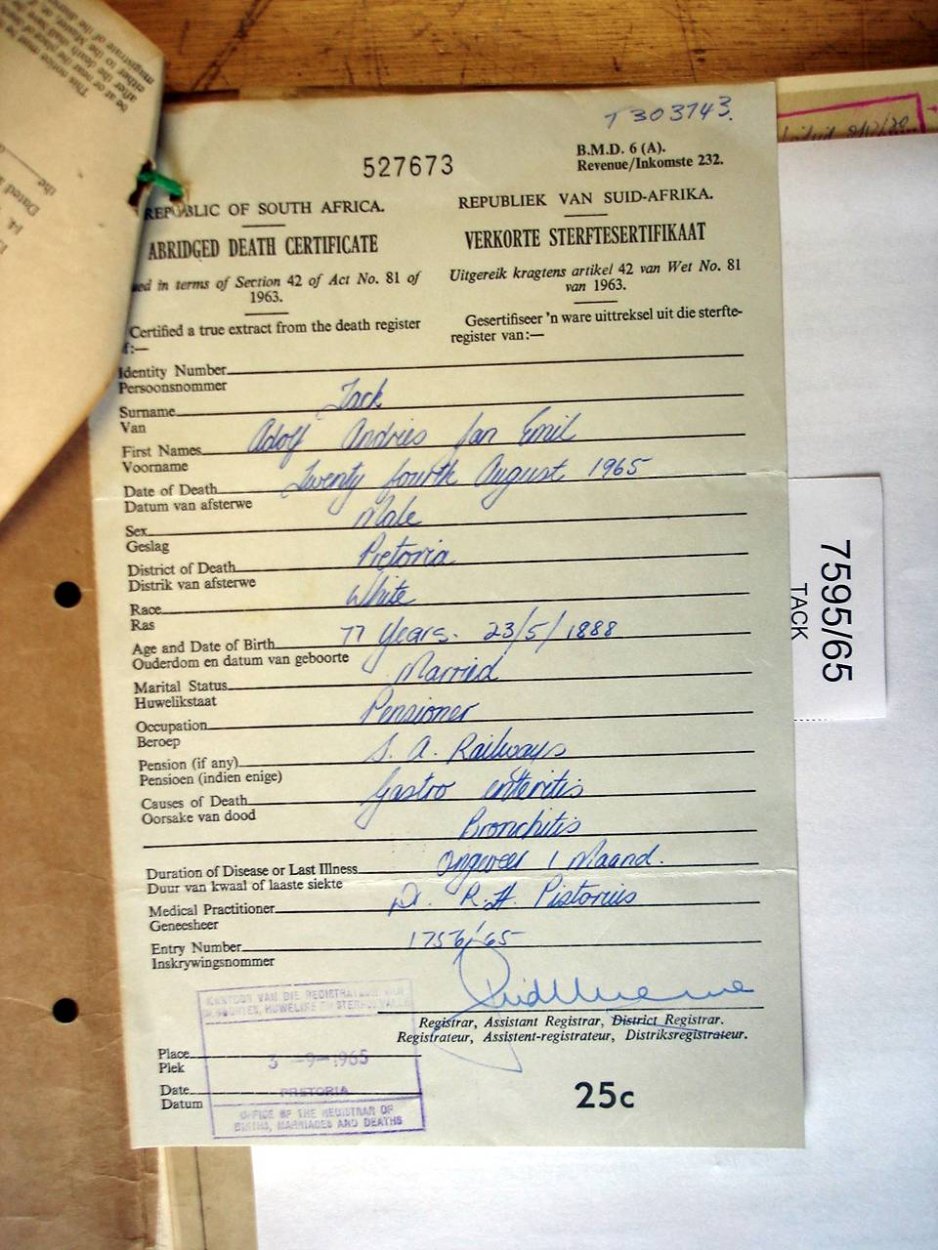 T303743.
527673
B.M.D. 6 (A).
Revenue/Inkomste 232.
REPUBLIC OF SOUTH AFRICA.
REPUBLIEK VAN SUID-AFRIKA.
ABRIDGED DEATH CERTIFICATE
VERKORTE STERFTESERTIFIKAAT
in terms of Section 42 of Act No. 81 of
1963.
Uitgereik kragtens artikel 42 van Wet No. 81
van 1963.
Certified a true extract from the death register
Gesertifiseer 'n ware uittreksel uit die sterfte-
register van:—
Identity Number
Persoonsnommer
Surname Tack
Van
First Names Adolf Andries Jan Emil
Voorname
Date of Death Twenty fourth August 1965
Datum van afsterwe
Sex Male
Geslag
District of Death Pretoria
Distrik van afsterwe
Race White
Ras
Age and Date of Birth 77 Years. 23/5/1888
Ouderdom en datum van geboorte
Marital Status Married
Huwelikstaat
Occupation Pensioner
Beroep
Pension (if any) S. A. Railways
Pensioen (indien enige)
Causes of Death Gastro enteritis
Oorsake van dood
Bronchitis
Duration of Disease or Last Illness Ongeveer 1 Maand.
Duur van kwaal of laaste siekte
Medical Practitioner Dr. R.H. Pistorius
Geneesheer
Entry Number 1756/65
Inskrywingsnommer
Registrar, Assistant Registrar, District Registrar.
Registrateur, Assistent-registrateur, Distriksregistrateur.
KANTOOR VAN DIE REGISTRATEUR VAN
GEBOORTES, HUWELIKE EN STERFGEVALLE
Place
Plek
3 -9-1965
Date
Datum
PRETORIA
OFFICE OF THE REGISTRAR OF
BIRTHS, MARRIAGES AND DEATHS
25c
7595/65
TACK